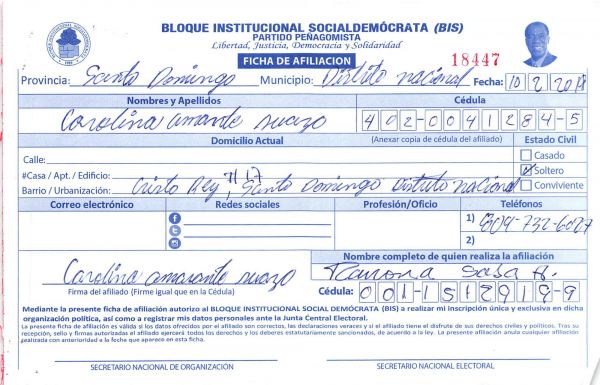 BLOQUE INSTITUCIONAL SOCIALDEMÓCRATA (BIS)
PARTIDO PEÑAGOMISTA
Libertad, Justicia, Democracia y Solidaridad
FICHA DE AFILIACION
18447
Provincia: Santo Domingo Municipio: Distrito nacional Fecha: 10 2 2018
Nombres y Apellidos Cédula
Carolina amarante suazo 402-0041284-5
Domicilio Actual (Anexar copia de cédula del afiliado) Estado Civil
Calle: Casado
#Casa / Apt. / Edificio: # 17 Soltero
Barrio / Urbanización: Cristo Rey, Santo Domingo Distrito nacional Conviviente
Correo electrónico Redes sociales Profesión/Oficio Teléfonos
1) 809-732-6027
2)
Nombre completo de quien realiza la afiliación
Carolina amarante suazo Ramona Sosa H.
Firma del afiliado (Firme igual que en la Cédula) Cédula: 001-1512919-9
Mediante la presente ficha de afiliación autorizo al BLOQUE INSTITUCIONAL SOCIAL DEMÓCRATA (BIS) a realizar mi inscripción única y exclusiva en dicha
organización política, así como a registrar mis datos personales ante la Junta Central Electoral.
La presente ficha de afiliación es válida si los datos ofrecidos por el afiliado son correctos, las declaraciones veraces y si el afiliado tiene el disfrute de sus derechos civiles y políticos. Tras su
recepción, sello y firmas autorizadas el afiliado ejercerá todos los derechos y los deberes estatutariamente sancionados, de acuerdo a la ley. La presente afiliación anula cualquier afiliación
realizada con anterioridad a la fecha que aparece en esta ficha.
SECRETARIO NACIONAL DE ORGANIZACIÓN SECRETARIO NACIONAL ELECTORAL